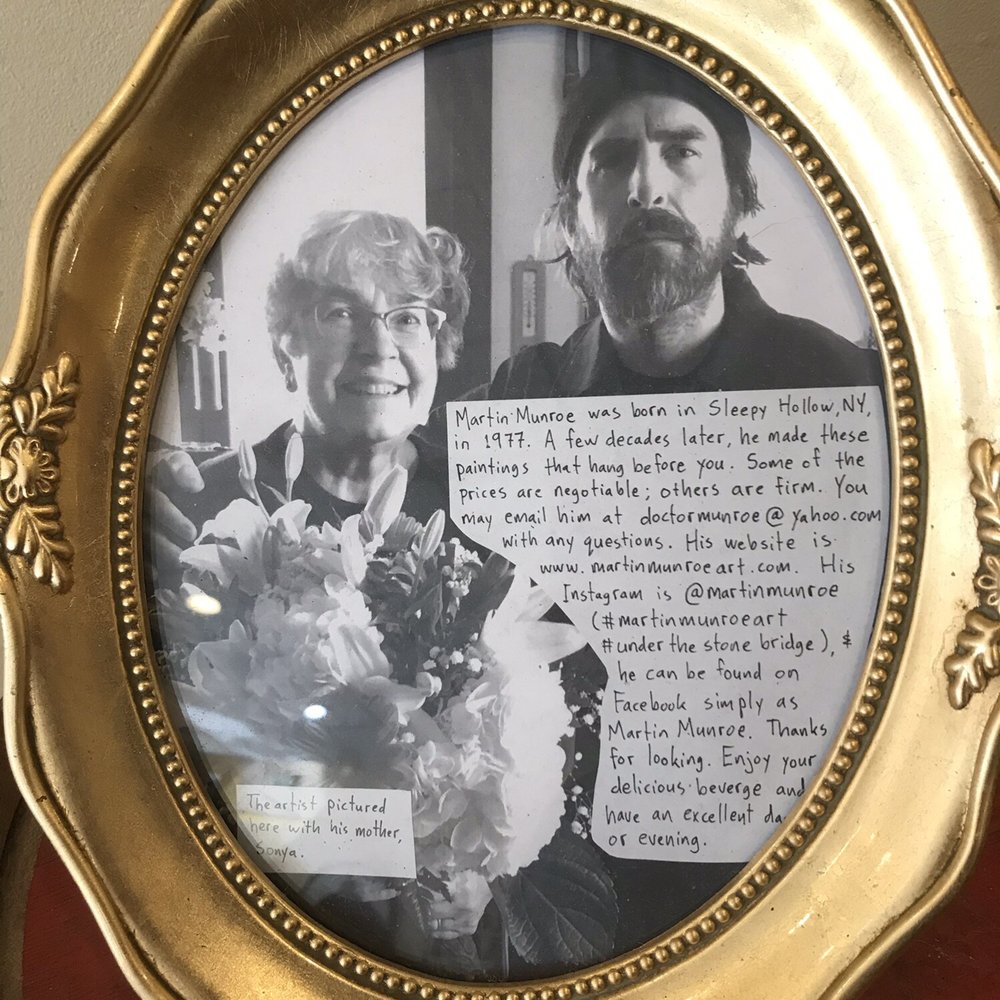 Martin Munroe was born in Sleepy Hollow, NY,
in 1977. A few decades later, he made these
paintings that hang before you. Some of the
prices are negotiable; others are firm. You
may email him at doctormunroe@yahoo.com
with any questions. His website is
www.martinmunroeart.com. His
Instagram is @martinmunroe
(#martinmunroeart
#underthestonebridge), &
he can be found on
Facebook simply as
Martin Munroe. Thanks
for looking. Enjoy your
delicious beverge and
have an excellent da
or evening.
The artist pictured
here with his mother,
Sonya.